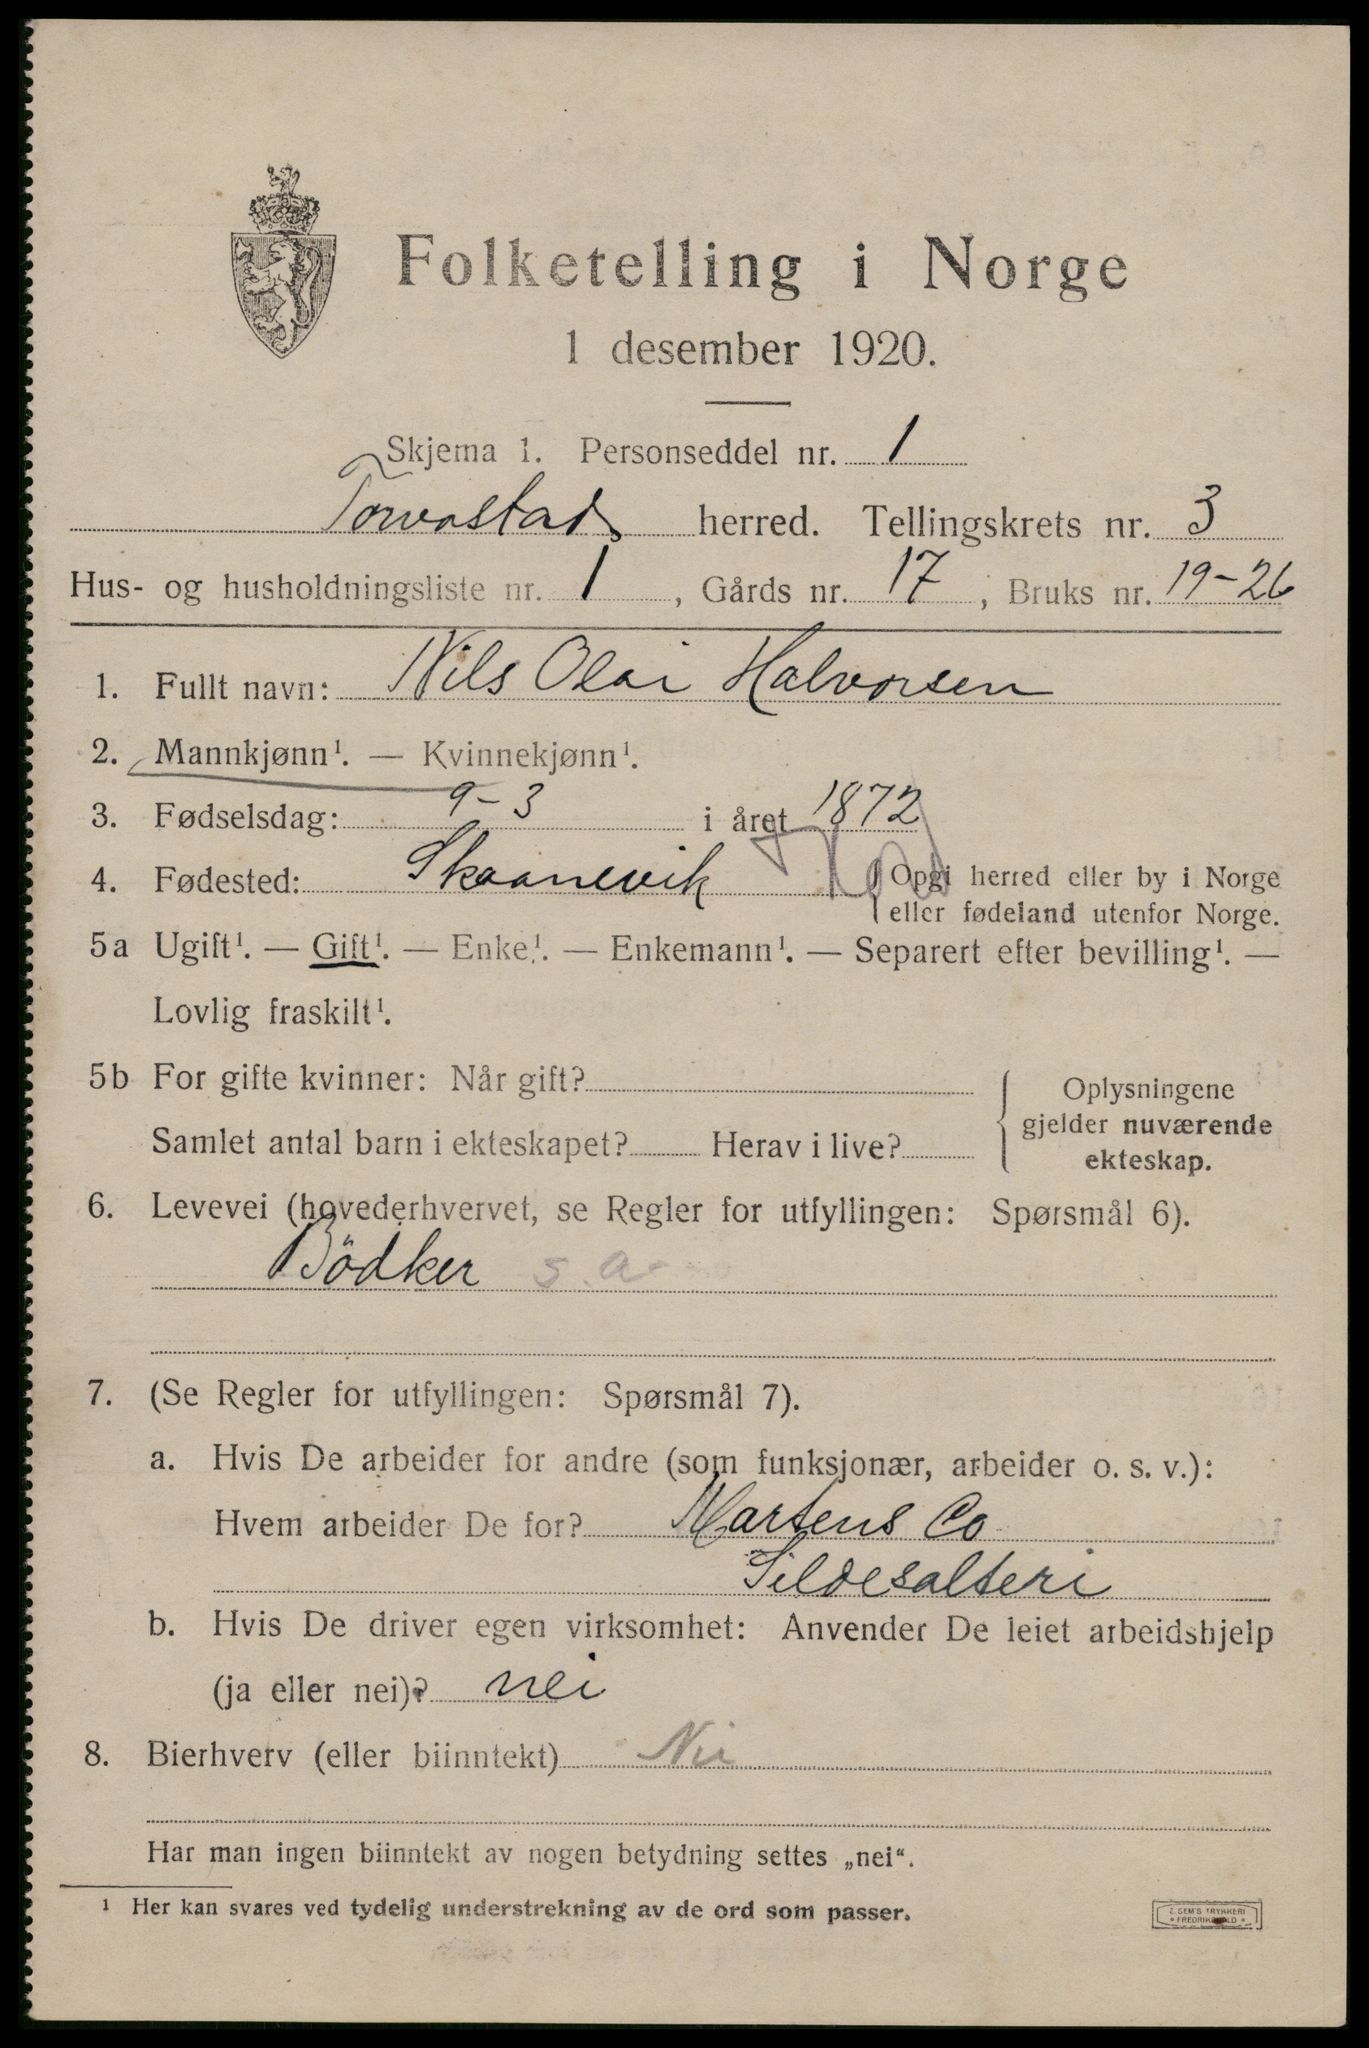 Folketelling i Norge
1 desember 1920.
Skjema 1. Personseddel nr. 1
Torvastad herred. Tellingskrets nr. 3
Hus- og husholdningsliste nr. 1, Gårds nr. 17, Bruks nr. 19-26
1. Fullt navn: Nils Olai Halvorsen
2. Mannkjønn¹. — Kvinnekjønn¹.
3. Fødselsdag: 9-3 i året 1872
4. Fødested: Skaanevik { Opgi herred eller by i Norge
eller fødeland utenfor Norge.
5a Ugift¹. — Gift¹. — Enke¹. — Enkemann¹. — Separert efter bevilling¹. —
Lovlig fraskilt¹.
5b For gifte kvinner: Når gift?
Samlet antal barn i ekteskapet? Herav i live?
Oplysningene
gjelder nuværende
ekteskap.
6. Levevei (hovederhvervet, se Regler for utfyllingen: Spørsmål 6).
Bödker s. a.
7. (Se Regler for utfyllingen: Spørsmål 7).
a. Hvis De arbeider for andre (som funksjonær, arbeider o. s. v.):
Hvem arbeider De for? Martens Co
Sildesalteri
b. Hvis De driver egen virksomhet: Anvender De leiet arbeidshjelp
(ja eller nei)? nei
8. Bierhverv (eller biinntekt) Nei
Har man ingen biinntekt av nogen betydning settes „nei“.
¹ Her kan svares ved tydelig understrekning av de ord som passer.
E. SEM'S TRYKKERI
FREDRIKSHALD